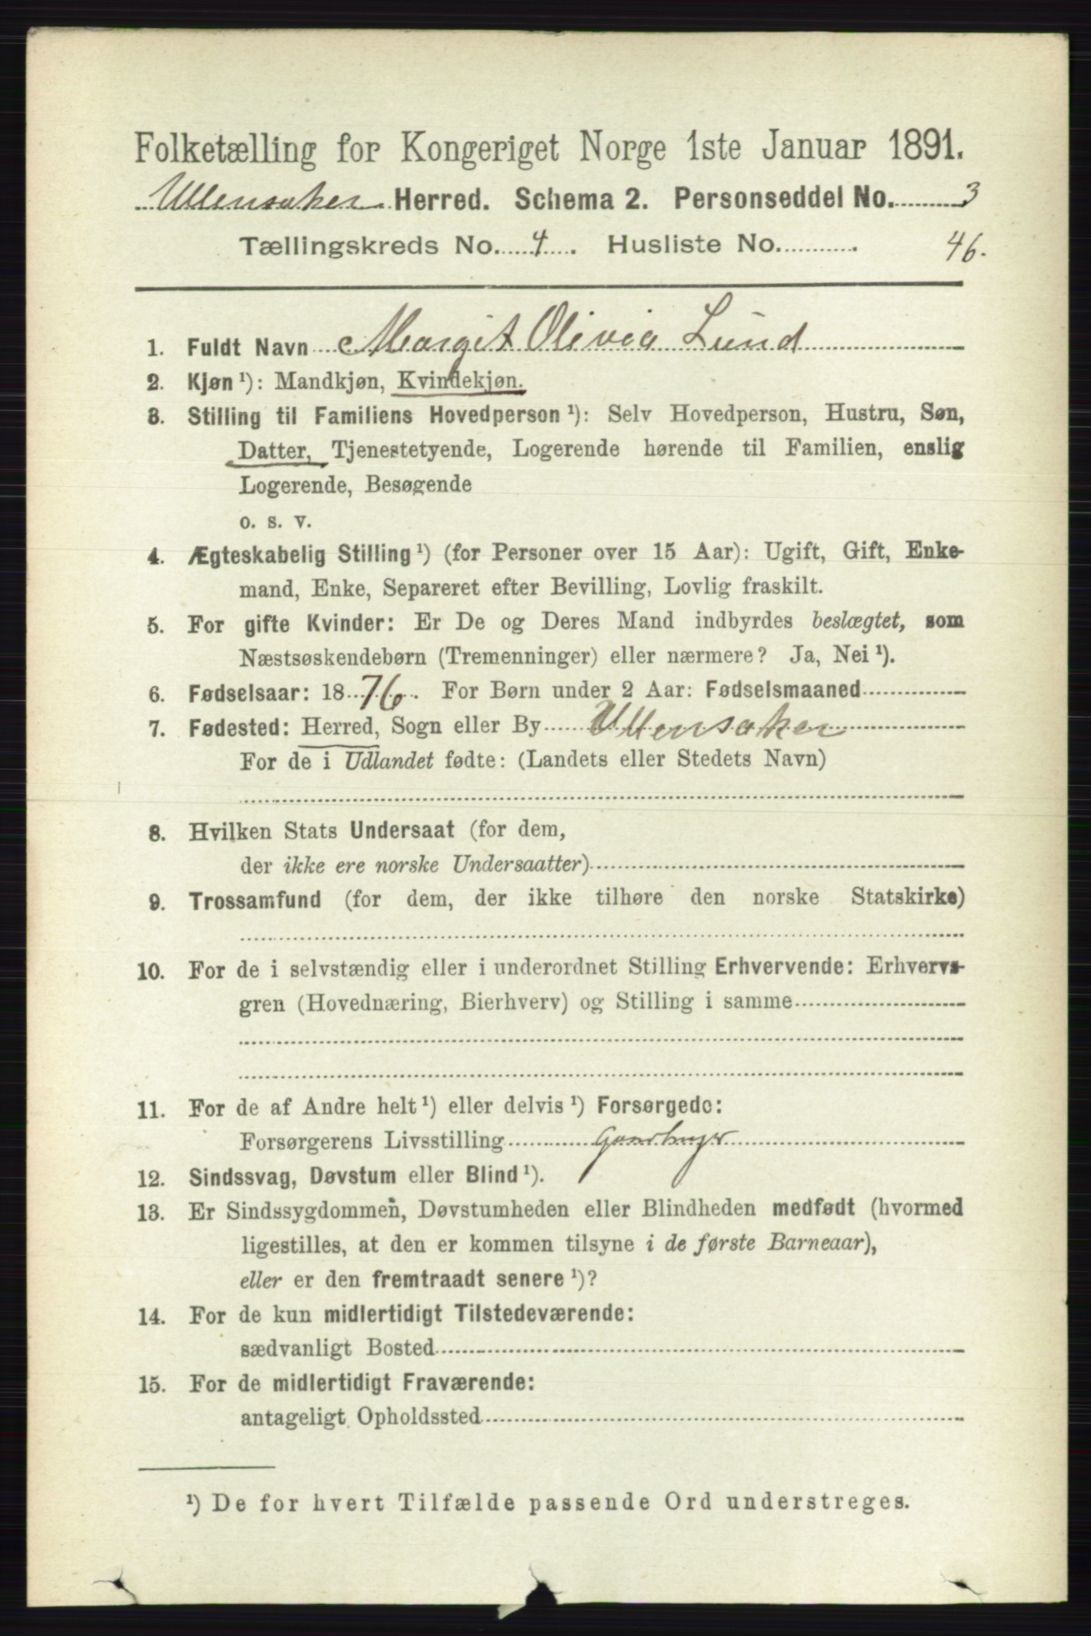 Folketælling for Kongeriget Norge 1ste Januar 1891.
Ullensaker Herred. Schema 2. Personseddel No. 3
Tællingskreds No. 4. Husliste No. 46.
1. Fuldt Navn Margit Olivia Lund
2. Kjøn ¹): Mandkjøn, Kvindekjøn.
3. Stilling til Familiens Hovedperson ¹): Selv Hovedperson, Hustru, Søn,
Datter, Tjenestetyende, Logerende hørende til Familien, enslig
Logerende, Besøgende
o. s. v.
4. Ægteskabelig Stilling ¹) (for Personer over 15 Aar): Ugift, Gift, Enke-
mand, Enke, Separeret efter Bevilling, Lovlig fraskilt.
5. For gifte Kvinder: Er De og Deres Mand indbyrdes beslægtet, som
Næstsøskendebørn (Tremenninger) eller nærmere? Ja, Nei ¹).
6. Fødselsaar: 1876. For Børn under 2 Aar: Fødselsmaaned
7. Fødested: Herred, Sogn eller By Ullensaker
For de i Udlandet fødte: (Landets eller Stedets Navn)
8. Hvilken Stats Undersaat (for dem,
der ikke ere norske Undersaatter)
9. Trossamfund (for dem, der ikke tilhøre den norske Statskirke)
10. For de i selvstændig eller i underordnet Stilling Erhvervende: Erhvervs-
gren (Hovednæring, Bierhverv) og Stilling i samme
11. For de af Andre helt ¹) eller delvis ¹) Forsørgede:
Forsørgerens Livsstilling
12. Sindssvag, Døvstum eller Blind ¹).
13. Er Sindssygdommen, Døvstumheden eller Blindheden medfødt (hvormed
ligestilles, at den er kommen tilsyne i de første Barneaar),
eller er den fremtraadt senere ¹)?
14. For de kun midlertidigt Tilstedeværende:
sædvanligt Bosted
15. For de midlertidigt Fraværende:
antageligt Opholdssted
¹) De for hvert Tilfælde passende Ord understreges.